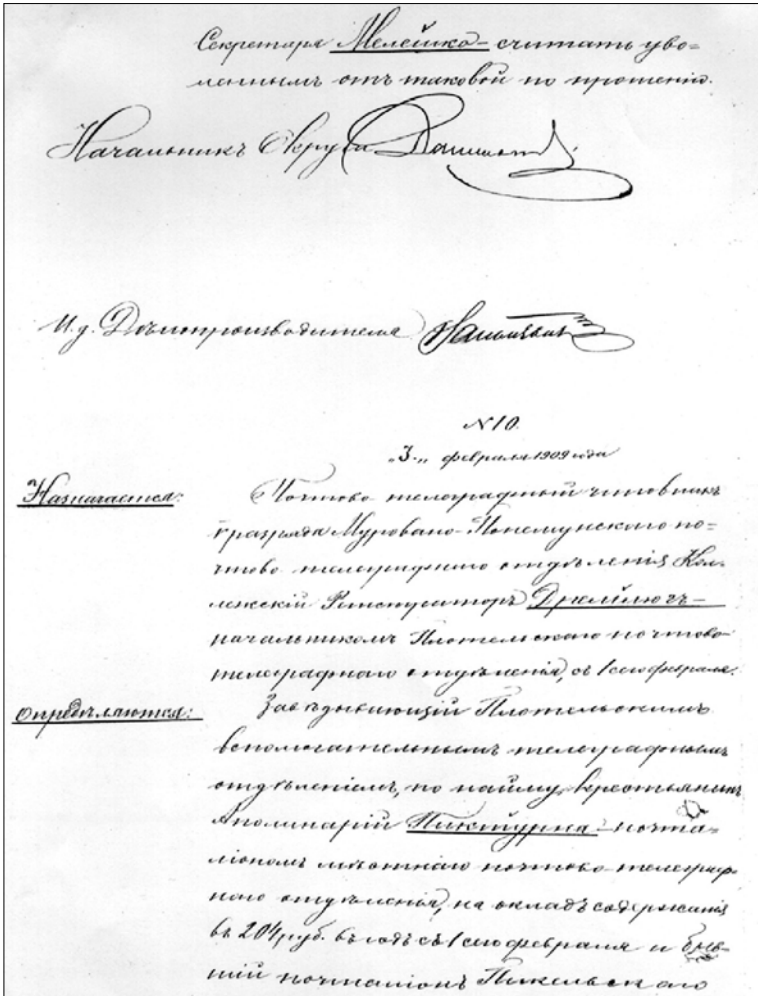 Секретаря Мелешко - считать уво=
леннымъ отъ таковой по прошенію.
Начальникъ Округа
И. д. Дѣлопроизводителя
№ 10.
"3" февраля 1909 года
Назначается:
Почтово-телеграфный чиновникъ
разряда Муровано-Понемунскаго по=
чтово-телеграфнаго отдѣленія Кол=
лежскій Регистраторъ Дрейлюгъ -
начальникомъ Плотельскаго почтово-
телеграфнаго отдѣленія, съ 1 сего февраля.
Опредѣляются:
Завѣдывающій Плотельскимъ
вспомогательнымъ телеграфнымъ
отдѣленіемъ, по найму, крестьянинъ
Аполинарій Пиктурна - почта=
ліономъ мѣстнаго почтово-телеграф=
наго отдѣленія, на окладъ содержанія
въ 204 руб. въ годъ съ 1 сего февраля и быв=
шій почталіонъ Пикельскаго